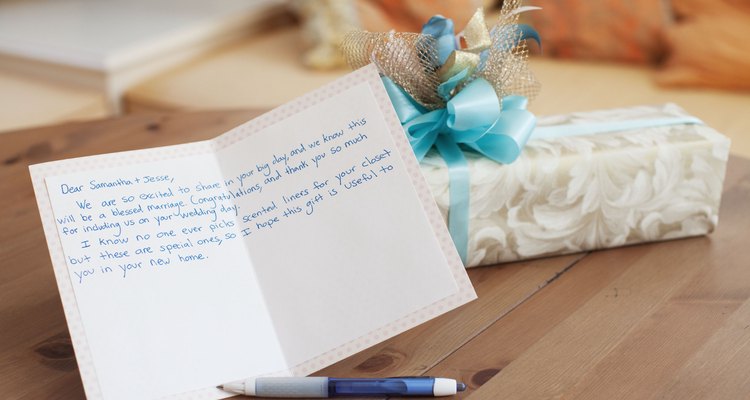 Dear Samantha + Jesse,
We are so excited to share in your big day, and we know this
will be a blessed marriage. Congratulations, and thank you so much
for including us on your wedding day.
I know no one ever picks scented liners for your closet
but these are special ones, so I hope this gift is useful to
you in your new home.